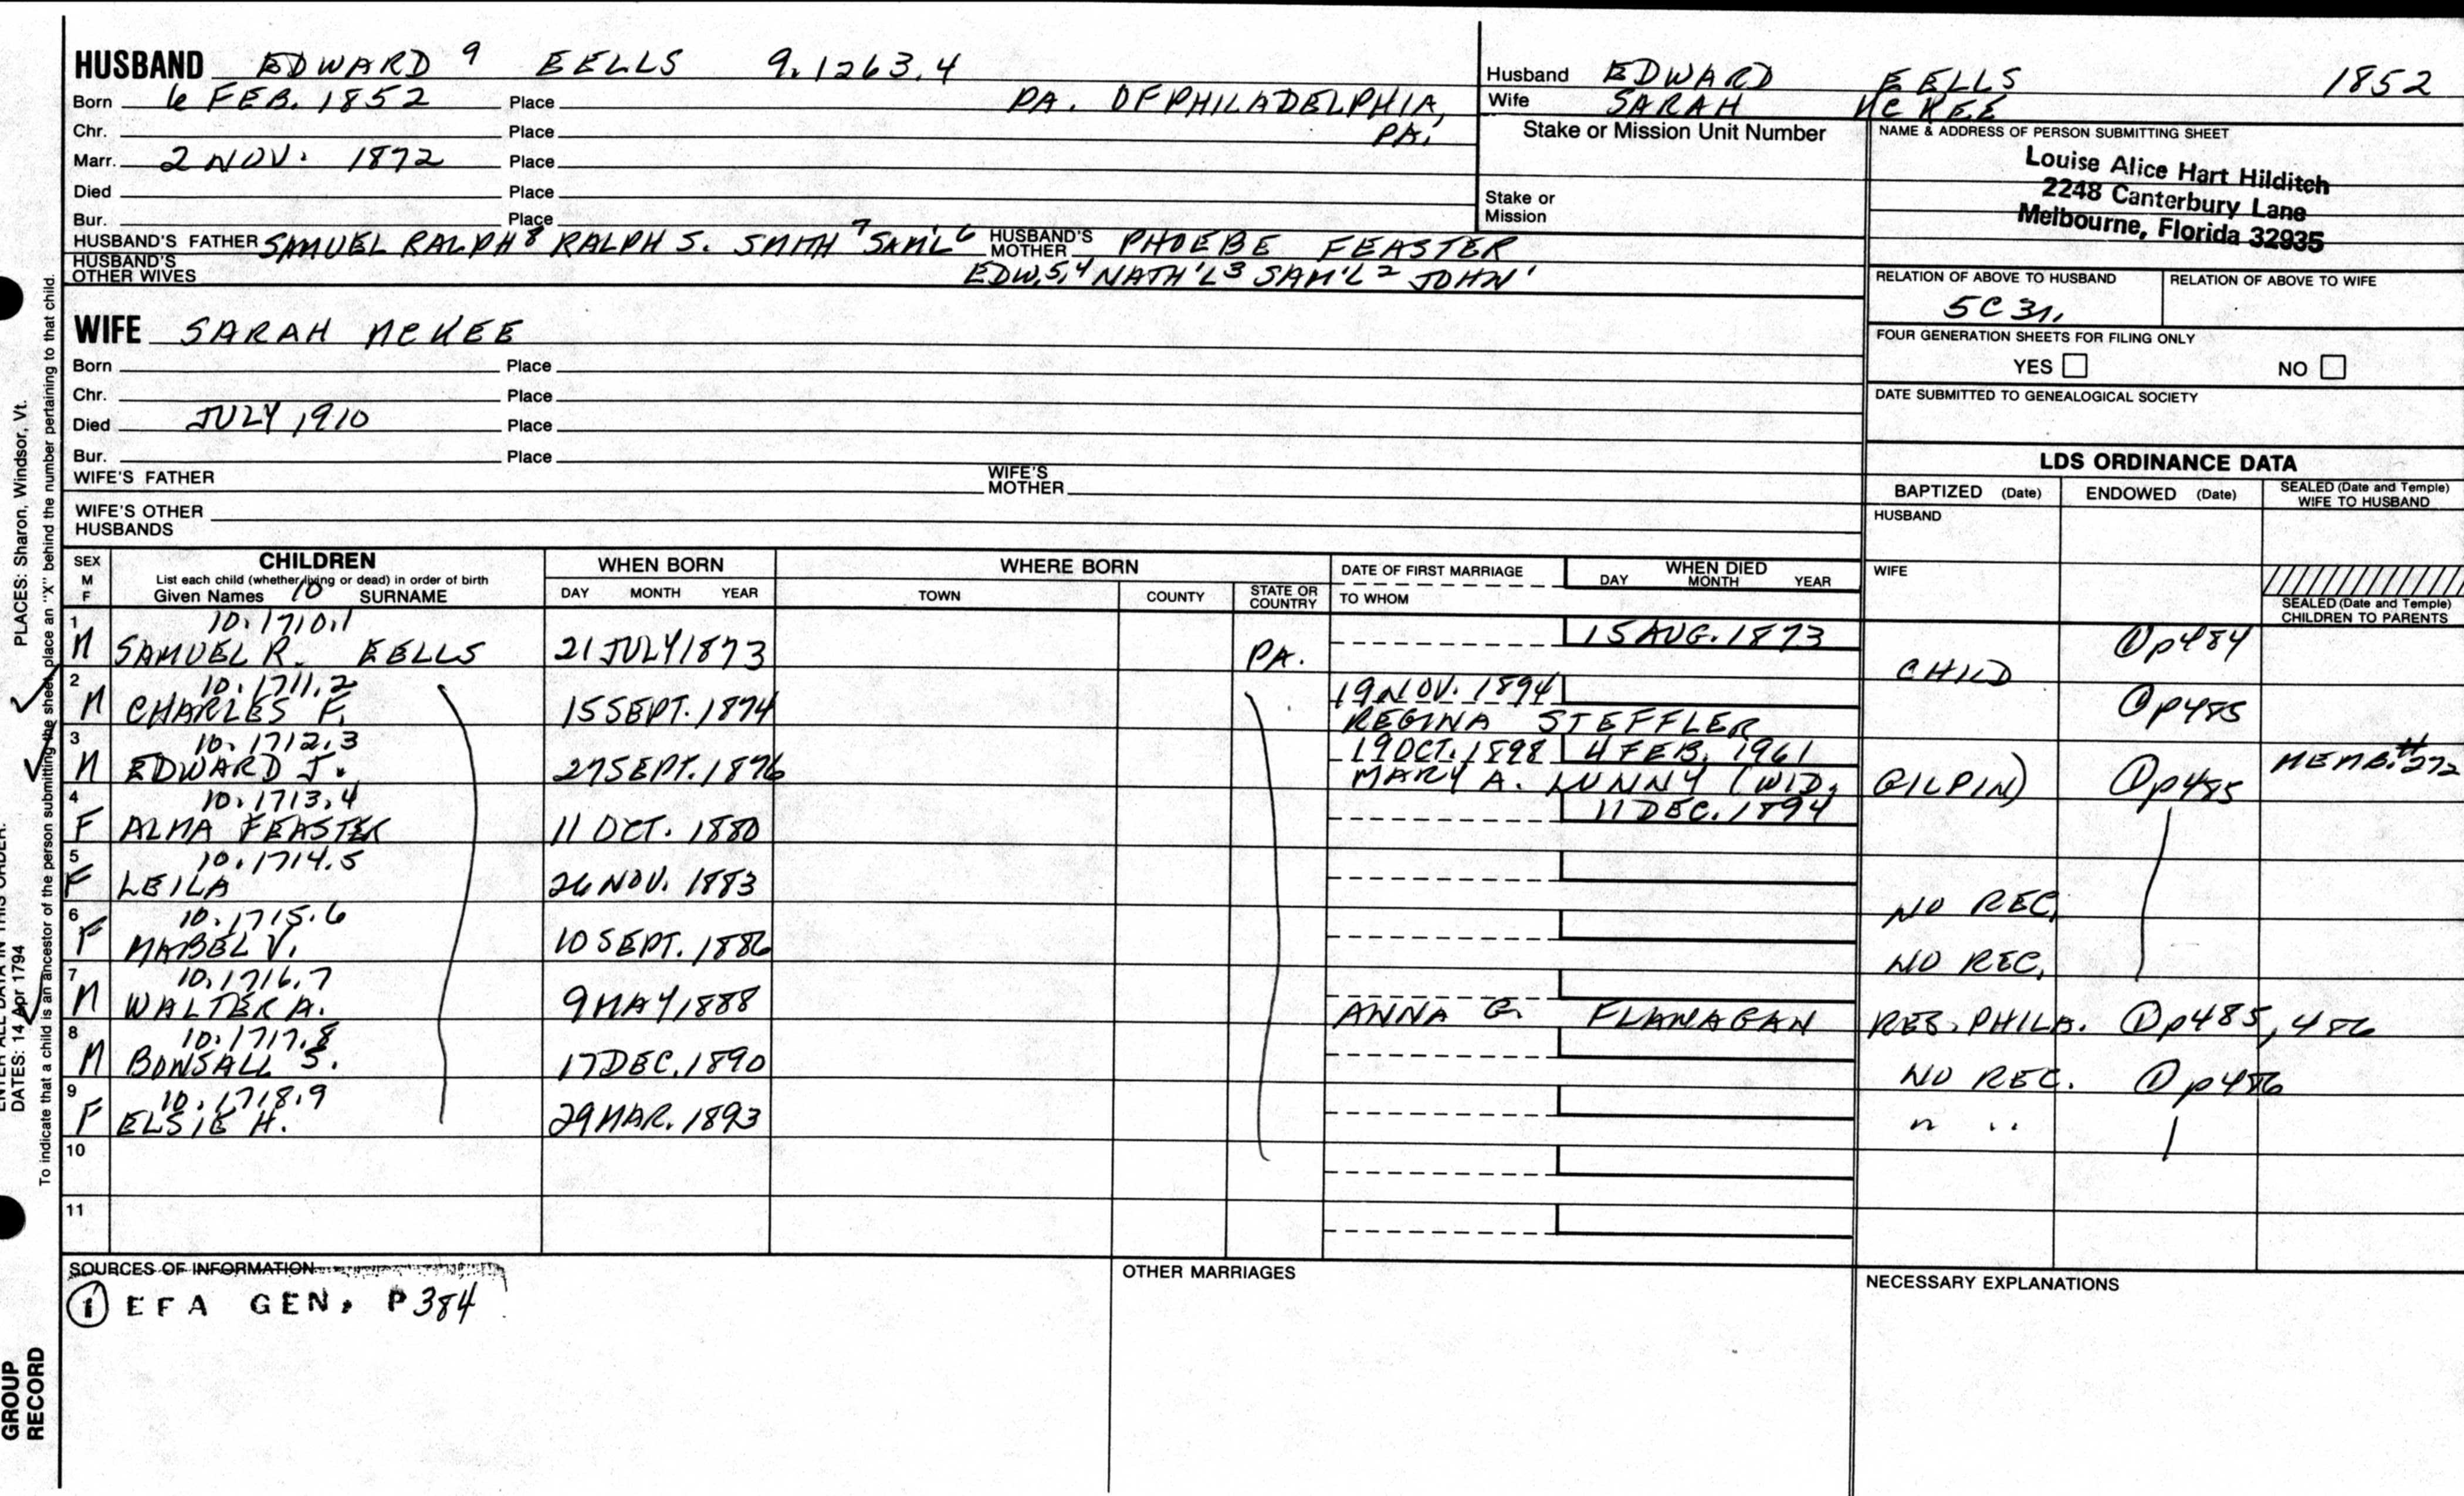 HUSBAND EDWARD 9 EELLS 9.1263.4
Born 6 FEB. 1852 Place PA. OF PHILADELPHIA,
Chr. Place PA.
Marr. 2 NOV. 1872 Place
Died Place
Bur. Place
HUSBAND'S FATHER SAMUEL RALPH 8 RALPH S. SMITH 7 SAM'L 6 HUSBAND'S MOTHER PHOEBE FEASTER
HUSBAND'S OTHER WIVES EDW. 5,4 NATH'L 3 SAM'L 2 JOHN 1
Husband EDWARD EELLS 1852
Wife SARAH MCKEE
Stake or Mission Unit Number
Stake or Mission
NAME & ADDRESS OF PERSON SUBMITTING SHEET
Louise Alice Hart Hilditch
2248 Canterbury Lane
Melbourne, Florida 32935
RELATION OF ABOVE TO HUSBAND RELATION OF ABOVE TO WIFE
5C3r.
FOUR GENERATION SHEETS FOR FILING ONLY
YES NO
DATE SUBMITTED TO GENEALOGICAL SOCIETY
WIFE SARAH MCKEE
Born Place
Chr. Place
Died JULY 1910 Place
Bur. Place
WIFE'S FATHER WIFE'S MOTHER
WIFE'S OTHER HUSBANDS
LDS ORDINANCE DATA
BAPTIZED (Date) ENDOWED (Date) SEALED (Date and Temple) WIFE TO HUSBAND
HUSBAND
WIFE
SEALED (Date and Temple) CHILDREN TO PARENTS
SEX M F
CHILDREN
List each child (whether living or dead) in order of birth
Given Names 10 SURNAME
WHEN BORN
DAY MONTH YEAR
WHERE BORN
TOWN COUNTY STATE OR COUNTRY
DATE OF FIRST MARRIAGE
TO WHOM
WHEN DIED
DAY MONTH YEAR
1 10.1710.1 15 AUG. 1873
M SAMUEL R. EELLS 21 JULY 1873 PA. CHILD ① p484
2 10.1711.2 19 NOV. 1894
M CHARLES F. 15 SEPT. 1874 REGINA STEFFLER ① p485
3 10.1712.3 19 OCT. 1898 4 FEB. 1961
M EDWARD J. 27 SEPT. 1876 MARY A. LUNNY (WID. GILPIN) ① p485 MEMB. #272
4 10.1713.4 11 DEC. 1894
F ALMA FEASTER 11 OCT. 1880
5 10.1714.5
F LEILA 26 NOV. 1883 NO REC.
6 10.1715.6
F MABEL V. 10 SEPT. 1886 NO REC.
7 10.1716.7
M WALTER A. 9 MAY 1888 ANNA G. FLANAGAN RES. PHILA. ① p485, 486
8 10.1717.8
M BONSALL S. 17 DEC. 1890 NO REC. ① p486
9 10.1718.9
F ELSIE H. 29 MAR. 1893 " "
10
11
SOURCES OF INFORMATION
① EFA GEN, P384
OTHER MARRIAGES
NECESSARY EXPLANATIONS
PLACES: Sharon, Windsor, Vt.
DATES: 14 Apr 1794
To indicate that a child is an ancestor of the person submitting the sheet, place an "X" behind the number pertaining to that child.
GROUP
RECORD